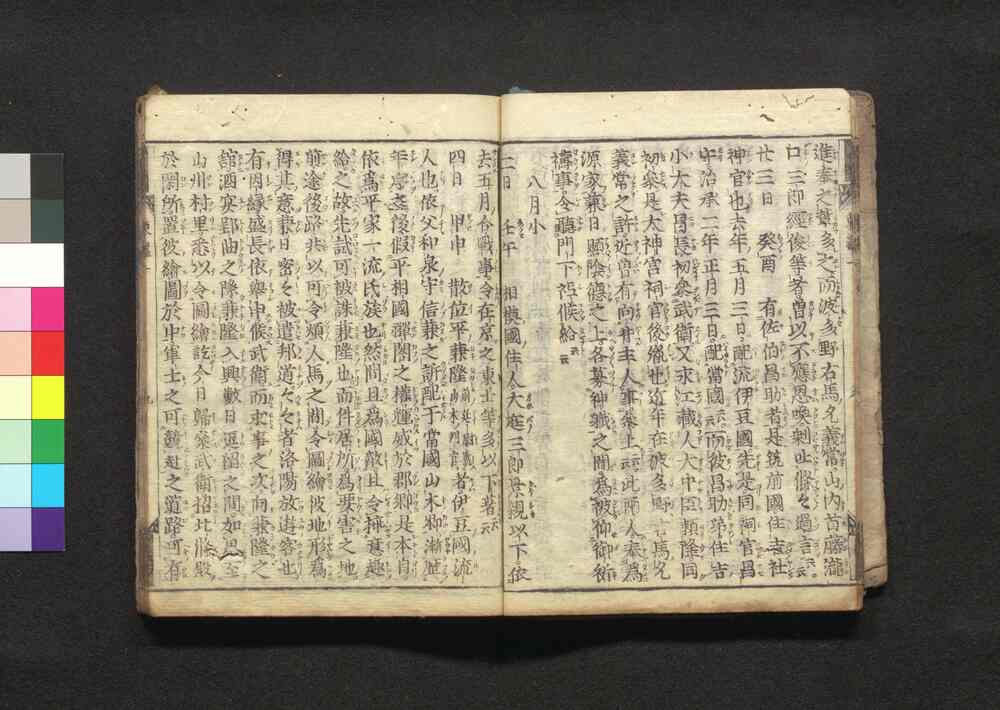 進奉之輩多之而波多野右馬允義常山內首藤瀧
口三郎經俊等者曽以不應恩喚剰吐條々過言云
廿三日 癸酉 有佐伯昌助者是筑前國住吉社
神官也去年五月三日配流伊豆國先是同祠官昌
守治承二年正月三日配當國云而彼昌助弟住吉
小大夫昌長初參武衛又永江藏人大中臣頼隆同
初參是太神宮祠官後胤也近年在波多野右馬允
義常之許近曽有向背主人事參上云此兩人奉為
源家兼日顕陰德之上各募神職之間為被仰御祈
禱事令聽門下祗候給云
八月小
二日 壬午 相摸國住人大庭三郎景親以下依
去五月合戰事令在京之東士等多以下著云
四日 甲申 散位平兼隆前廷尉號山木判官者伊豆國流
人也依父和泉守信兼之訴配于當國山木郷漸歴
年序之後假平相國禪閤之權輝威於郡郷是本自
依為平家一流氏族也然間且為國敵且令挿意趣
給之故先試可被誅兼隆也而件居所為要害之地
前途後路共以可令煩人馬之間令圖繪彼地形為
得其意兼日密々被遣邦道々々者洛陽放遊客也
有因縁盛長依舉申候武衛而求事之次向兼隆之
舘酒宴郢曲之際兼隆入興數日逗留之間如思至
山川村里悉以令圖繪訖今日歸參武衛招北條殿
於閑所置彼繪圖於中軍士之可競赴之道路可有